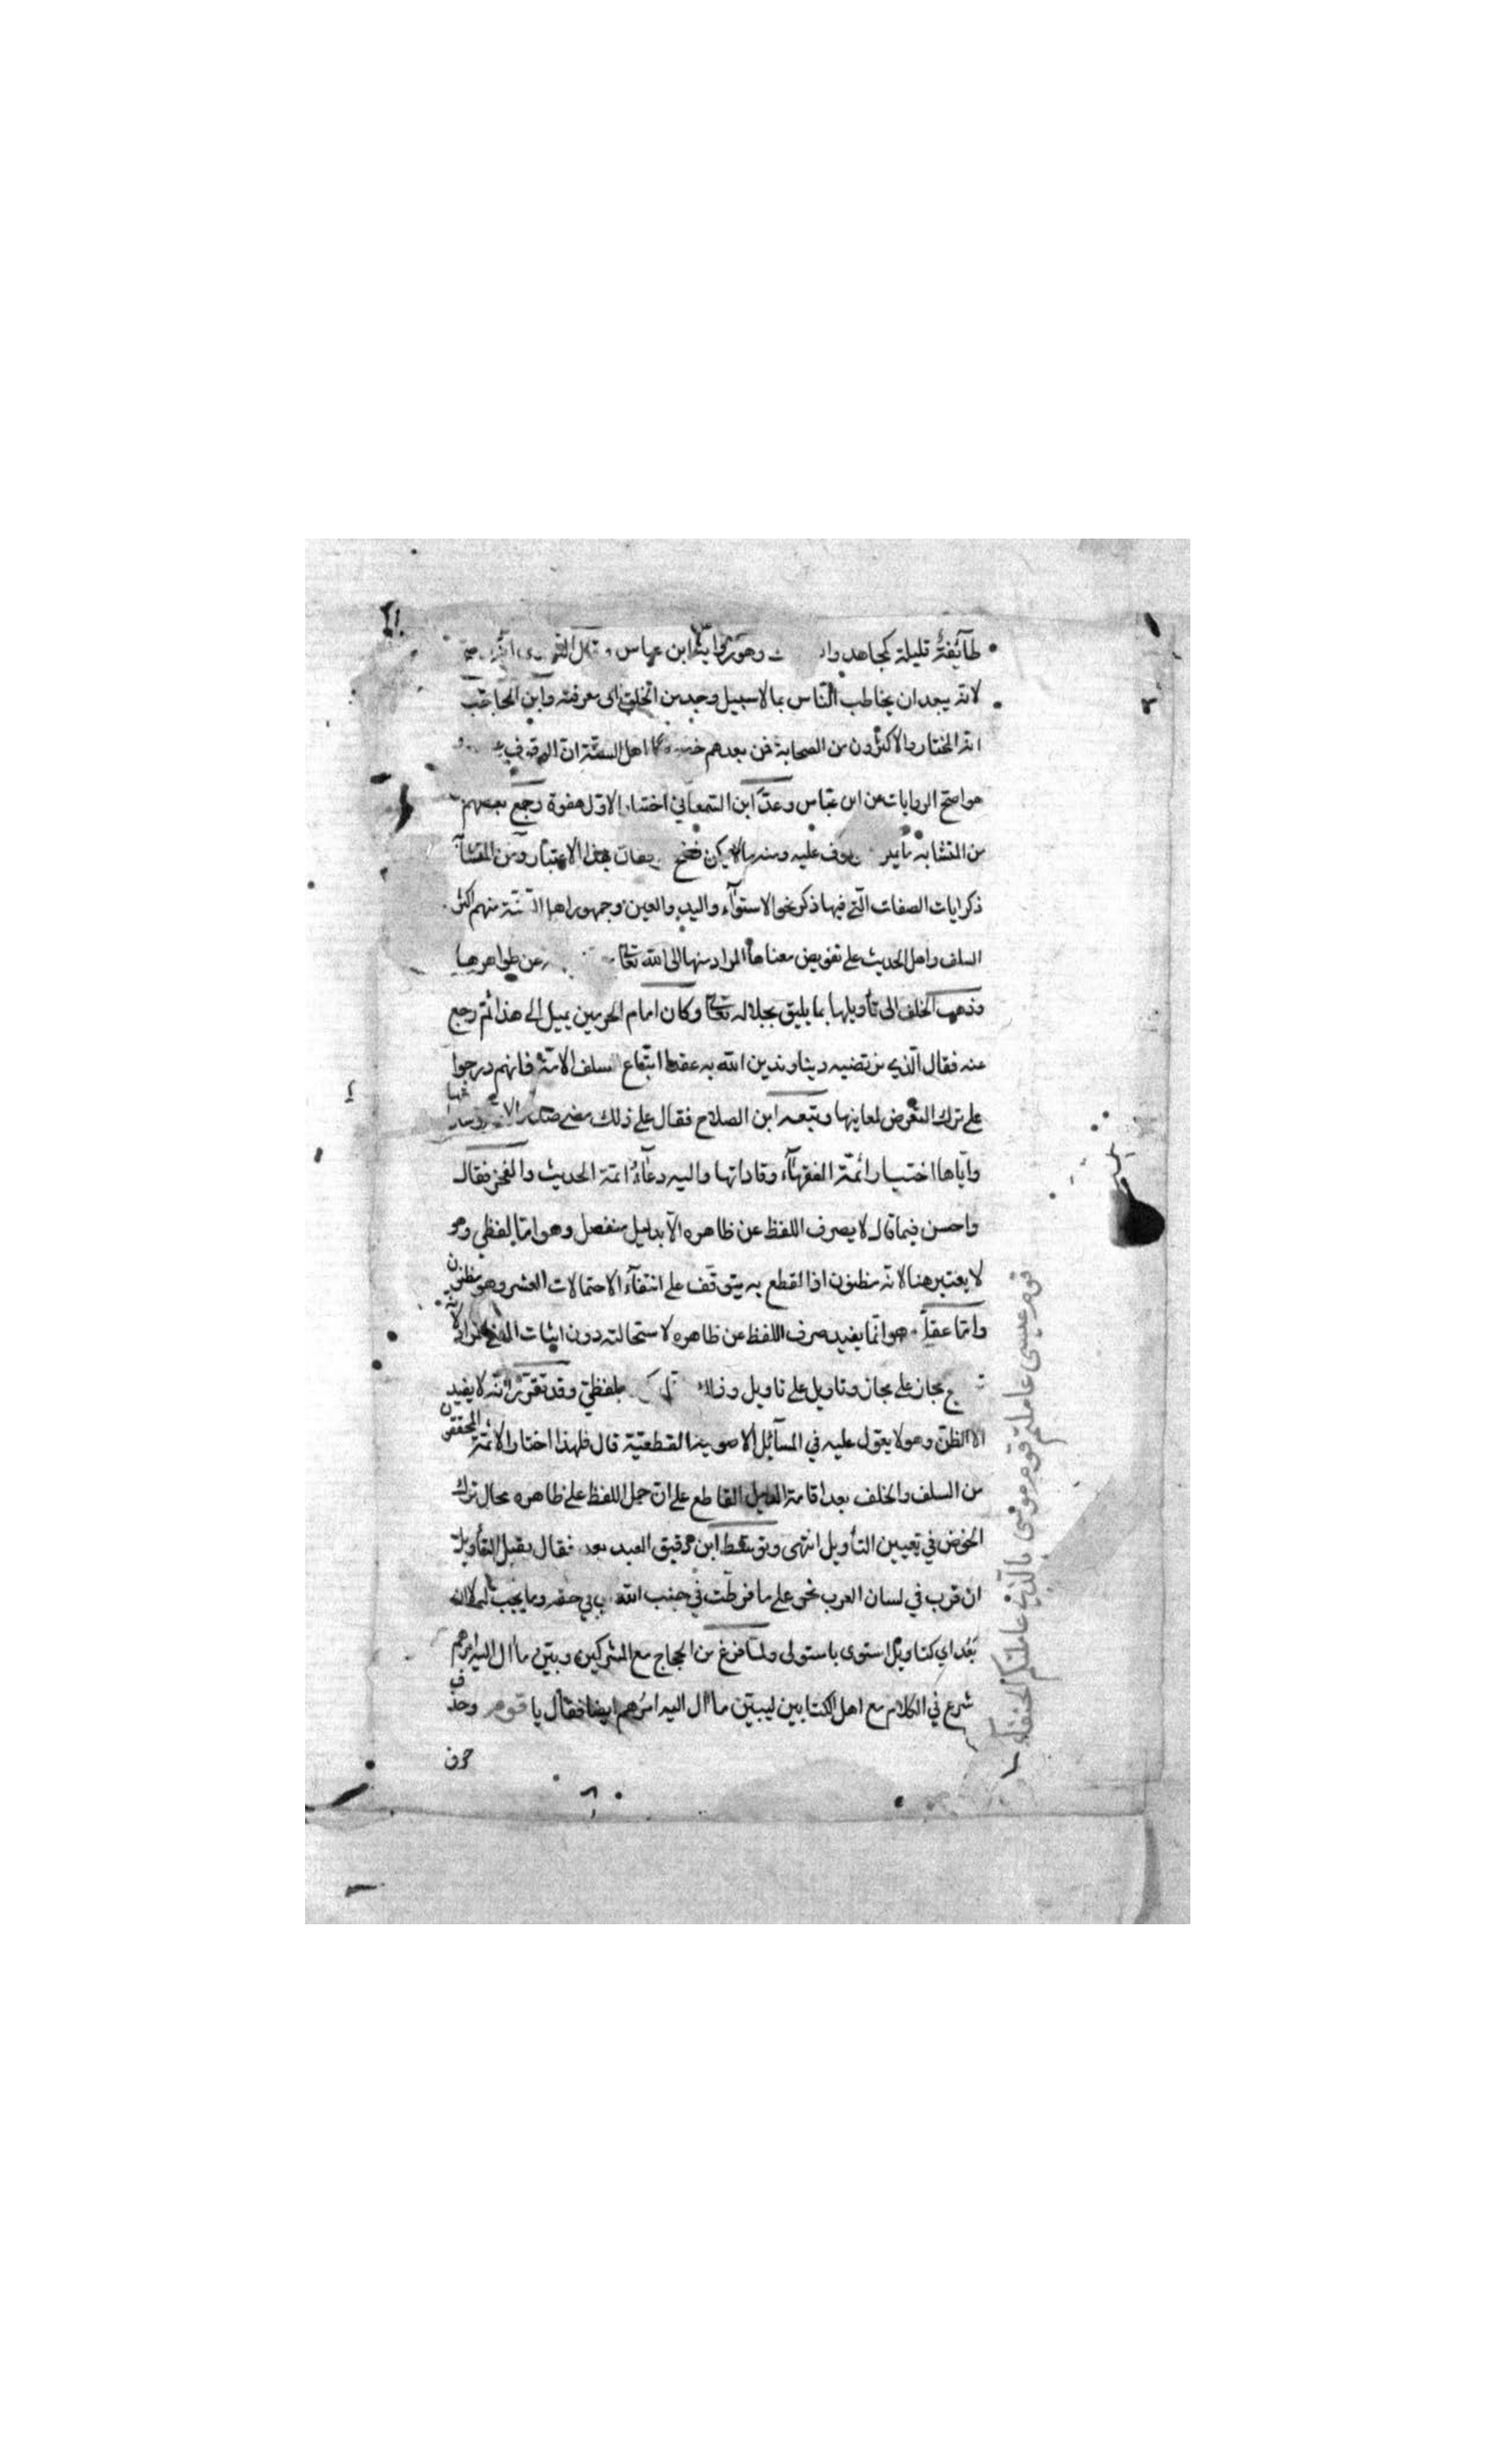 طآئفة قليلة كمجاهد وهو رواية ابن عباس
لانه يبعد ان يخاطب الناس بما لا سبيل وحد من الخلق الى معرفته وابن الحاجب
انه المختار والاكثرون من الصحابة فمن بعدهم اهل السنة ان الوقف
هو اصح الروايات عن ابن عباس وعدّ ابن السمعاني اختيار الاول هفوة رجع بعضهم
من المتشابه عليه ومنه ما لا يمكن الاعتبار ومن المتشا
ذكر ايات الصفات التي فيها ذكر نحو الاستوآء واليد والعين وجمهور اهل السنة منهم اكثر
السلف واهل الحديث على تفويض معناها المراد منها الى الله تعالى عن ظواهرها
وذهب الخلف الى تأويلها بما يليق بجلاله تعالى وكان امام الحرمين يميل الى هذا ثم رجع
عنه فقال الذي نرتضيه دينا وندين الله به عقدا اتباع السلف الامة فانهم درجوا
على ترك التعرض لمعاينها وتبعه ابن الصلاح فقال على ذلك مضى صدر الامة وساداتها
واياها اختيار ائمّة الفقهآء وقاداتها واليه دعآء ائمة الحديث والفخر فقال
واحسن فيما قال لا يصرف اللفظ عن ظاهره الا بدليل منفصل وهو اما لفظي وهو
لا يعتبر هنا لانه مظنون اذ القطع به يتوقف على انتفآء الاحتمالات العشر وهو مظنون
واما عقلي هو انما يفيد صرف اللفظ عن ظاهره لاستحالته دون اثبات المراد
مجاز على مجاز وتاويل على تاويل وذلك بلفظي وقد تقرر انه لا يفيد
الا الظن وهو لا يعول عليه في المسآئل الاصولية القطعيّة قال فلهذا اختار الائمّة المحققون
من السلف والخلف بعد اقامة الدليل القاطع على ان حمل اللفظ على ظاهره محال ترك
الخوض في تعيين التأويل انتهى وتوسّط ابن دقيق العيد بعد فقال يقبل التأويل
ان قرب في لسان العرب نحو على ما فرطت في جنب الله اي في حقه وما يجب له لا ان
بعُد اي كتاويل استوى باستولى ولما فرغ من الحجاج مع المشركين وبيّن ما ال اليه امرهم
شرع في الكلام مع اهل الكتابين ليبيّن ما ال اليه امرُهم ايضا فقال يا قوم وحذف
حرف
قوم عيسى عاملتم قوم موسى بالذي عاملتكم الحنفاء